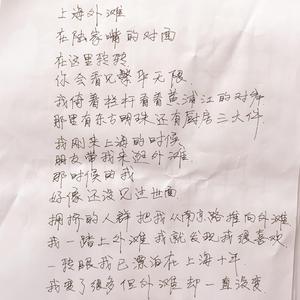 上海外滩
在陆家嘴的对面
在这里驻验
你会看见繁华无限
我倚着栏杆看着黄浦江的对岸
那里有东方明珠还有厨房三大件
我刚来上海的时候
朋友带我来逛外滩
那时候的我
好像还没见过世面
拥挤的人群把我从南京路推向外滩
我一踏上外滩我就发现我很喜欢
一转眼我已漂泊在上海十年
我变了很多但外滩却一直没变